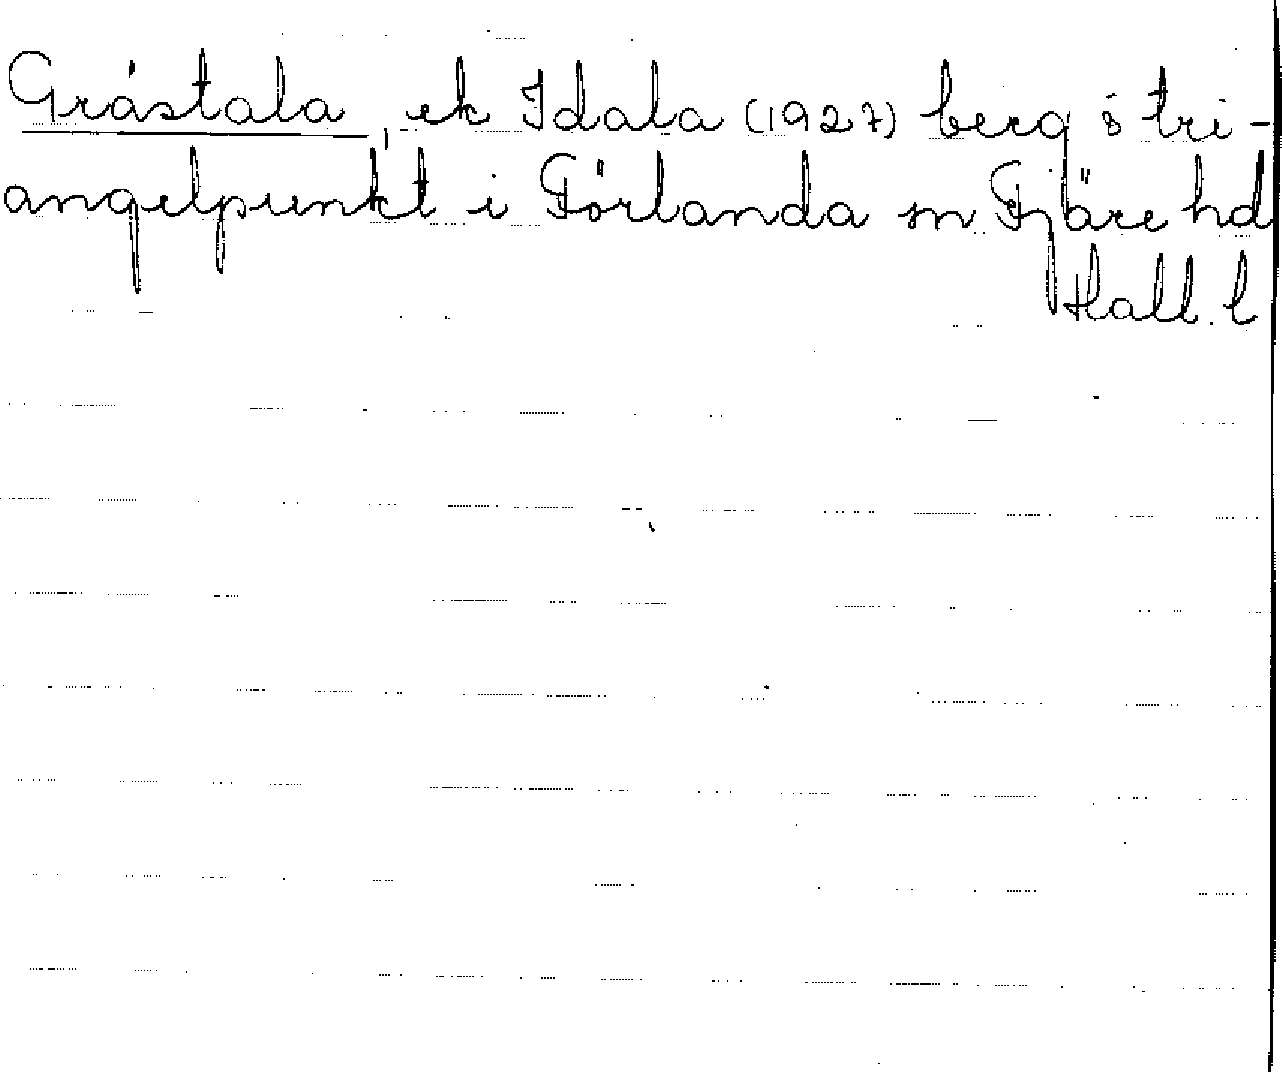 Gråstala, ek Idala (1927) berg o tri-
angelpunkt i Förlanda sn Fjäre hd
Hall. l